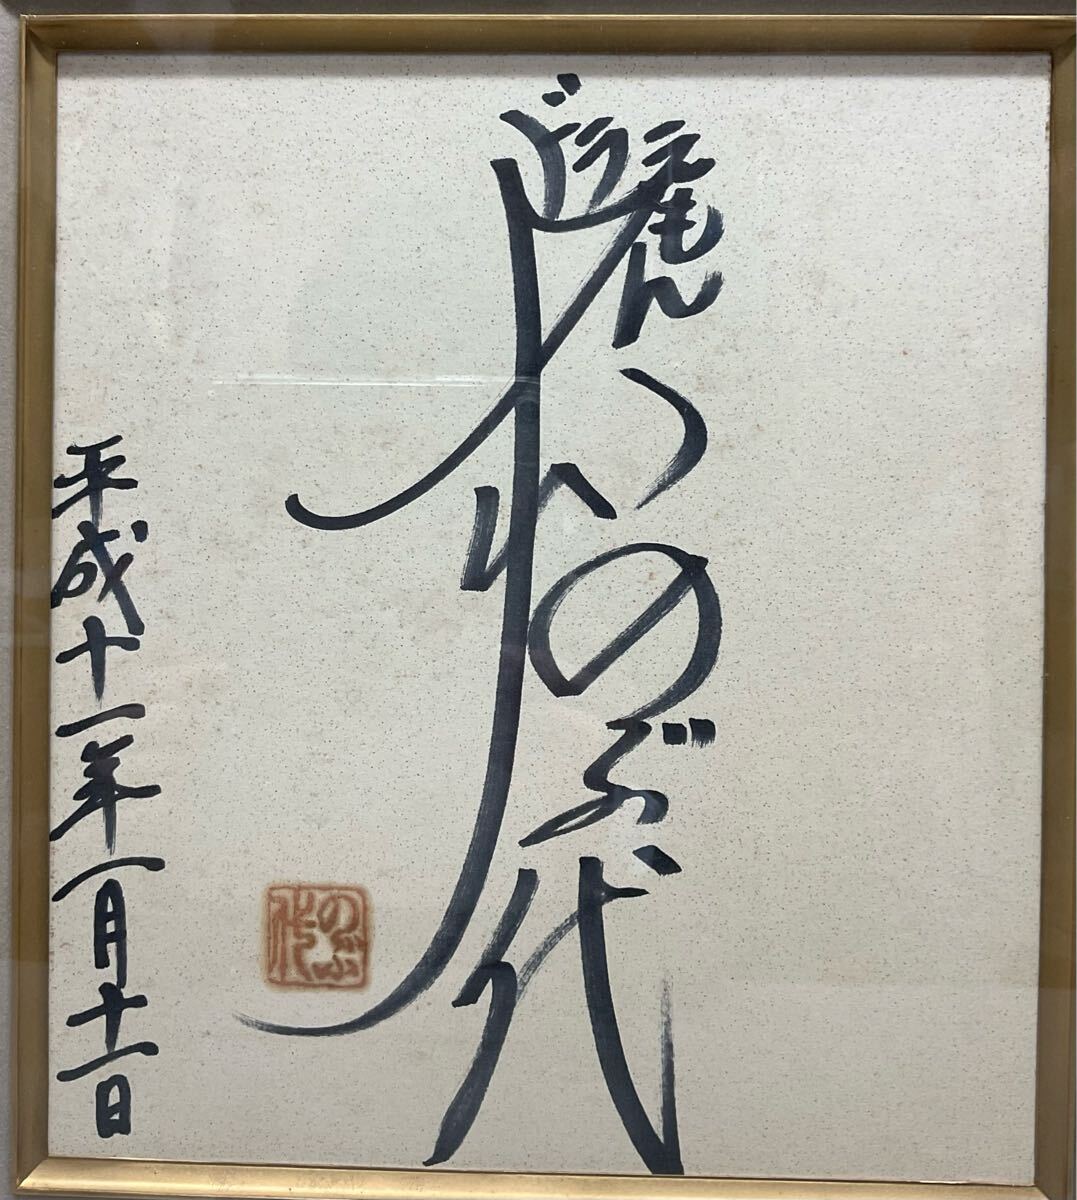 ドラえもん
大山のぶ代
平成十一年一月十一日
のぶ代